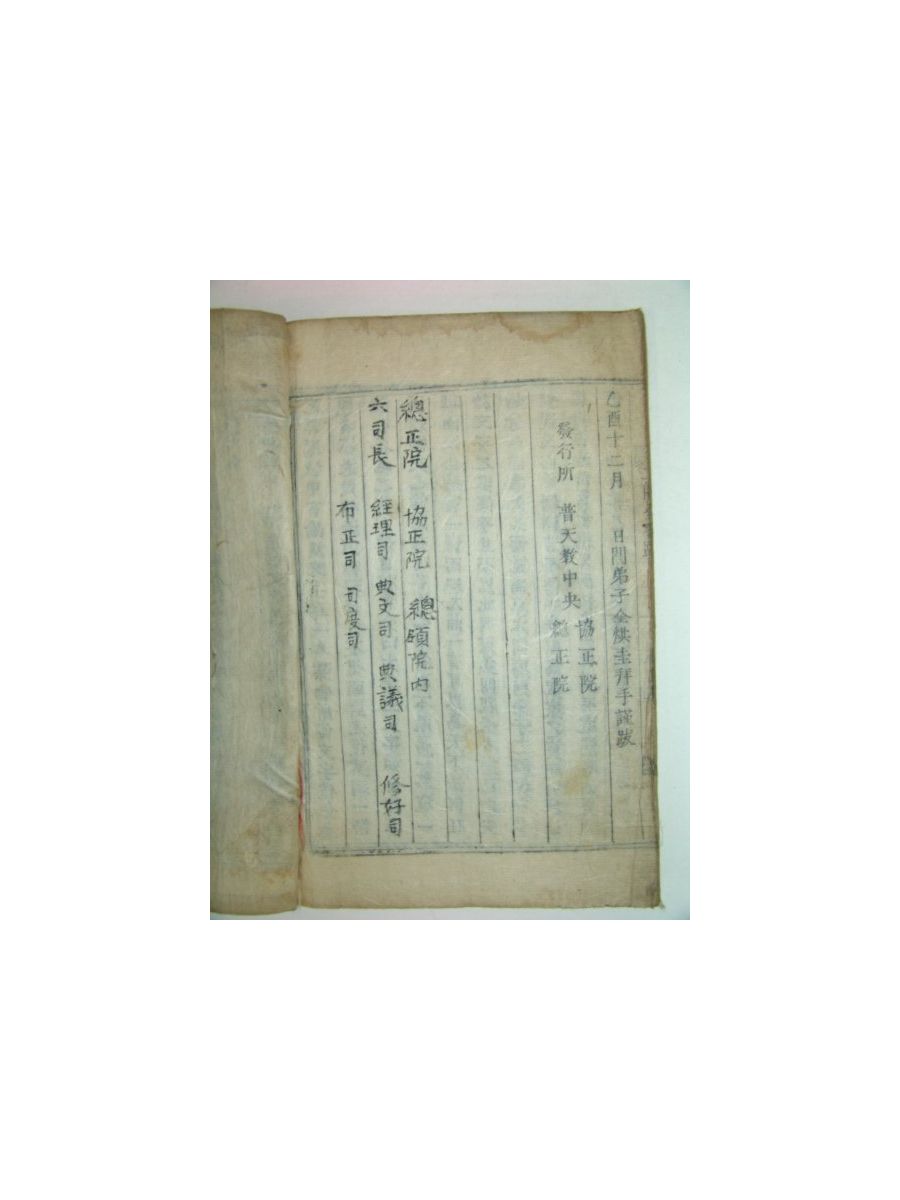 乙酉十二月 日門弟子金烘圭拜手謹跋
發行所 普天教中央 協正院
總正院
總正院 協正院 總領院内
六司長 經理司 典文司 典議司 修好司
布正司 司度司